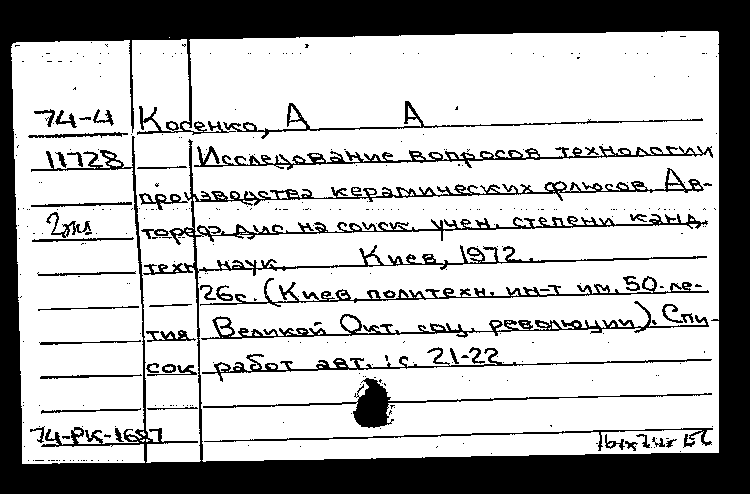 74-4 Косенко, А А
11728 Исследование вопросов технологии
производства керамических флюсов. Ав-
2 экз тореф. дис. на соиск. учен. степени канд.
техн. наук. Киев, 1972.
26с. (Киев. политехн. ин-т им. 50-ле-
тия Великой Окт. соц. революции). Спи-
сок работ авт.: с. 21-22.
74-РК-1687